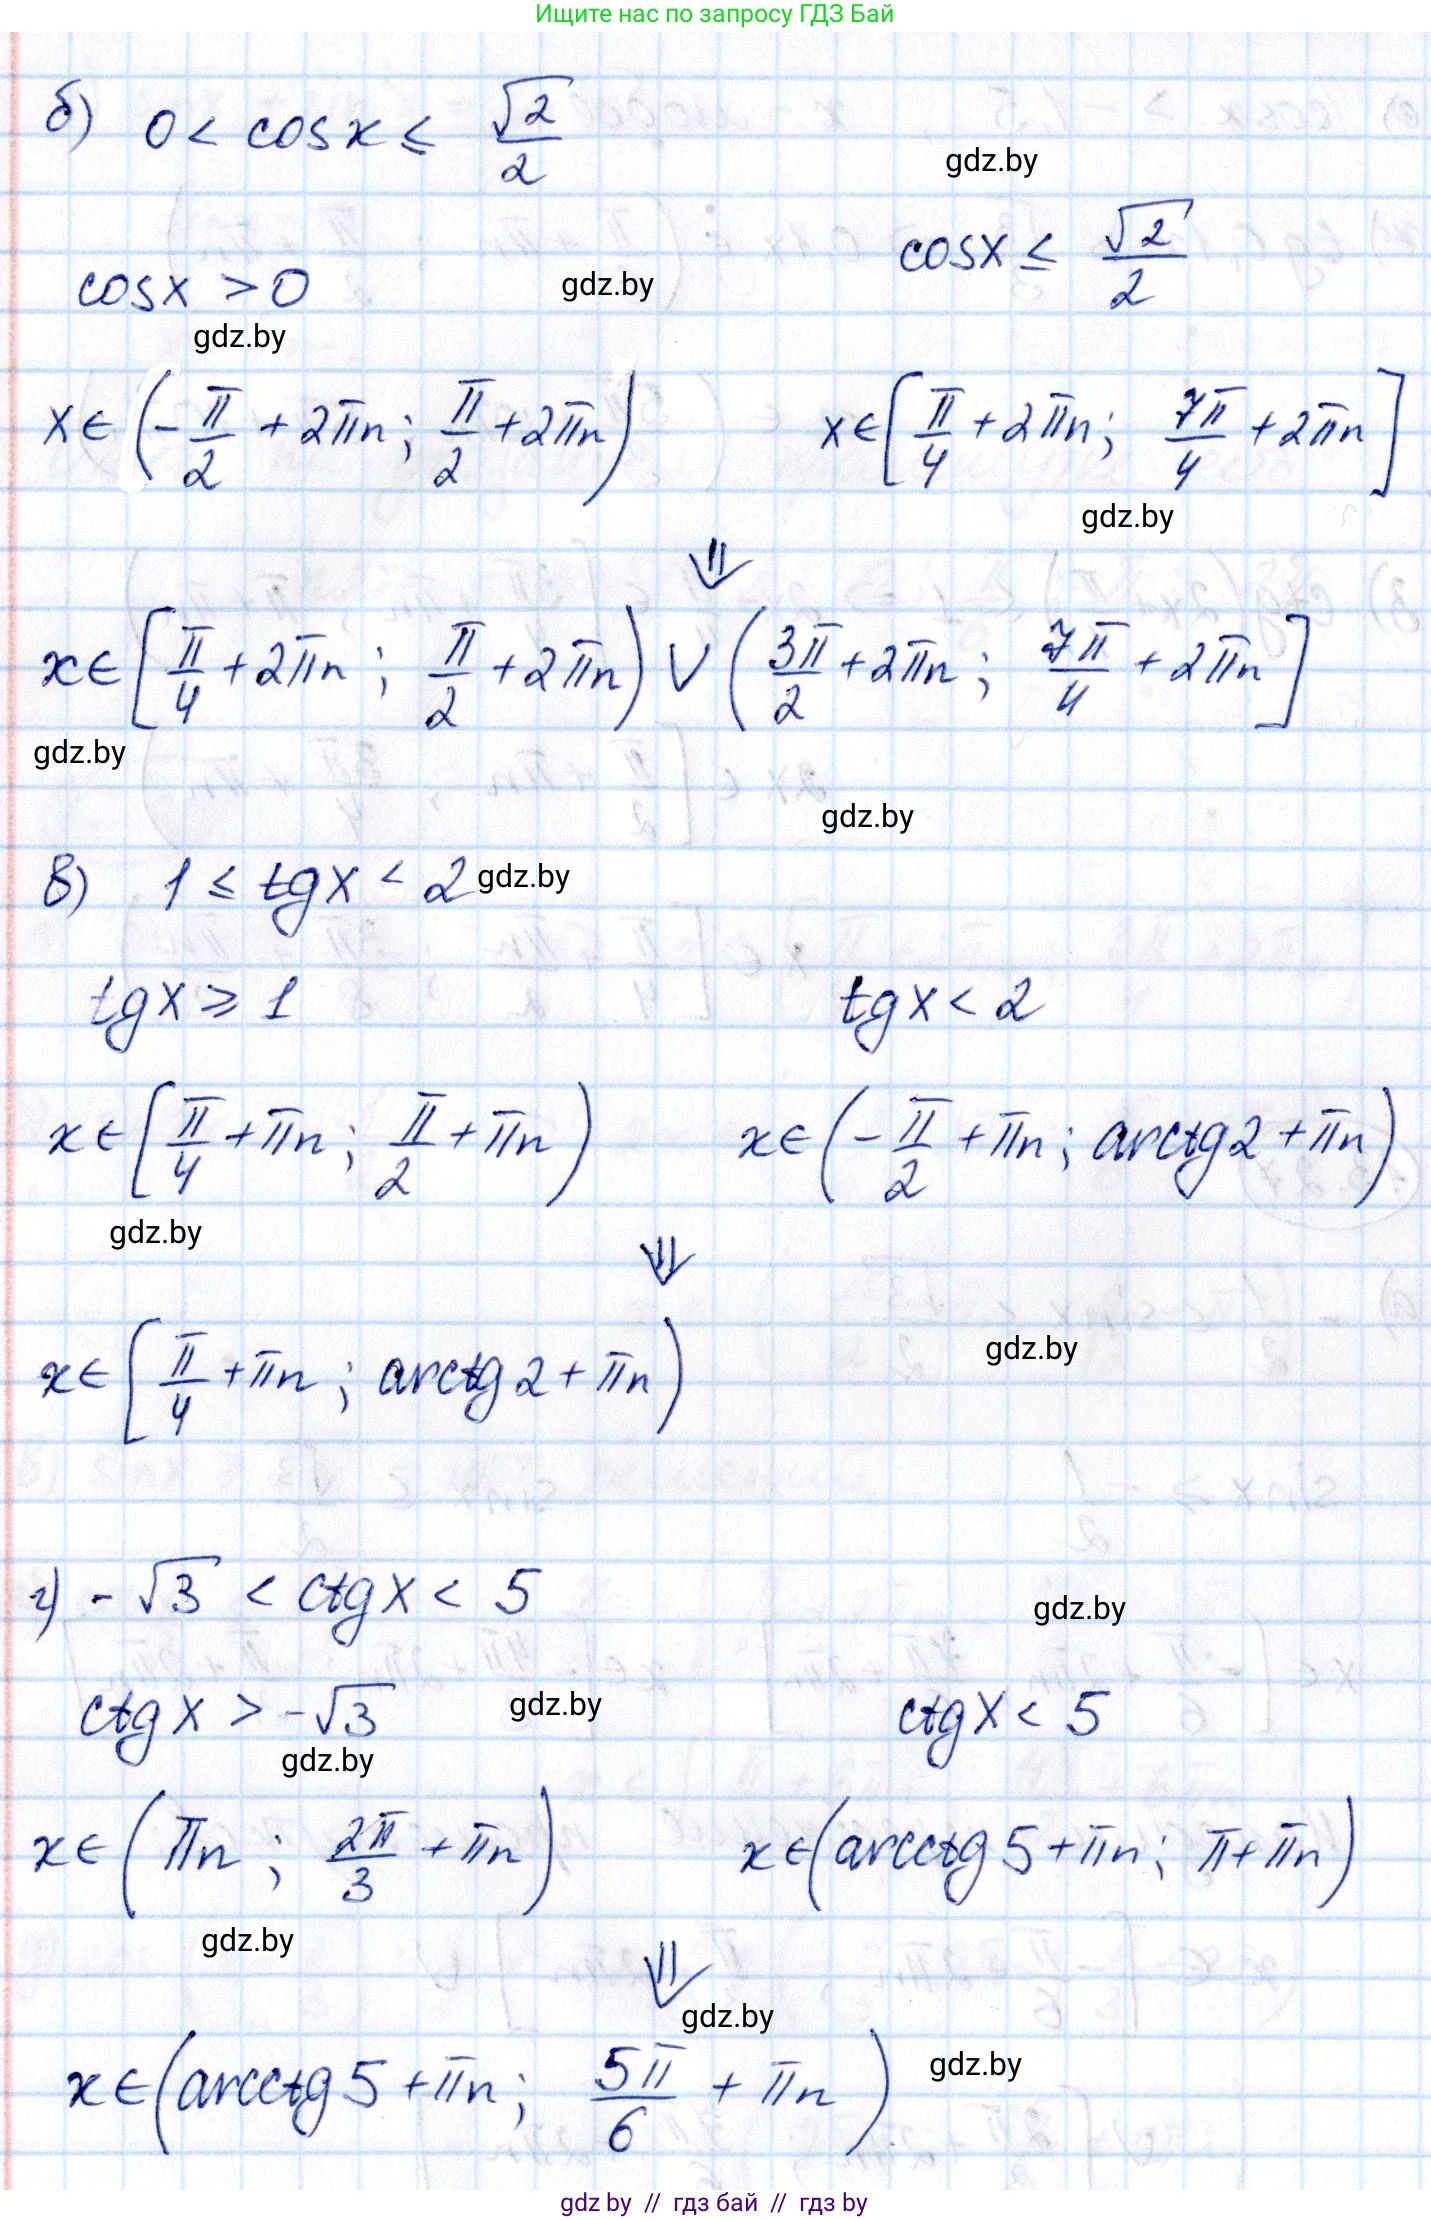 Ищите нас по запросу ГДЗ Бай
б) 0 < cosx ≤ √2/2
gdz.by
cosx > 0 gdz.by cosx ≤ √2/2
gdz.by
x ∈ (-π/2 + 2πn; π/2 + 2πn) x ∈ [π/4 + 2πn; 7π/4 + 2πn]
gdz.by
⇓
x ∈ [π/4 + 2πn; π/2 + 2πn) ∨ (3π/2 + 2πn; 7π/4 + 2πn]
gdz.by
gdz.by
в) 1 ≤ tgx < 2 gdz.by
tgx ≥ 1 tgx < 2
x ∈ [π/4 + πn; π/2 + πn) x ∈ (-π/2 + πn; arctg2 + πn)
gdz.by
⇓
x ∈ [π/4 + πn; arctg2 + πn) gdz.by
г) -√3 < ctgx < 5
gdz.by
ctgx > -√3 gdz.by ctgx < 5
gdz.by
x ∈ (πn; 2π/3 + πn) x ∈ (arcctg5 + πn; π + πn)
gdz.by
⇓
gdz.by
x ∈ (arcctg5 + πn; 5π/6 + πn) gdz.by
gdz by // гдз бай // гдз by